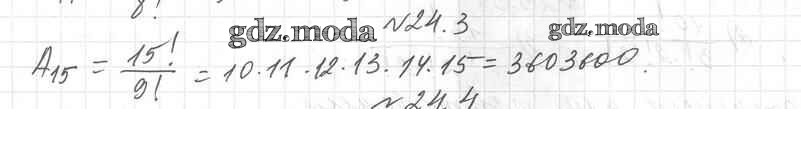 8!
gdz.moda №24.3 gdz.moda
A15 = 15!/9! = 10·11·12·13·14·15 = 3603600.
№24.4